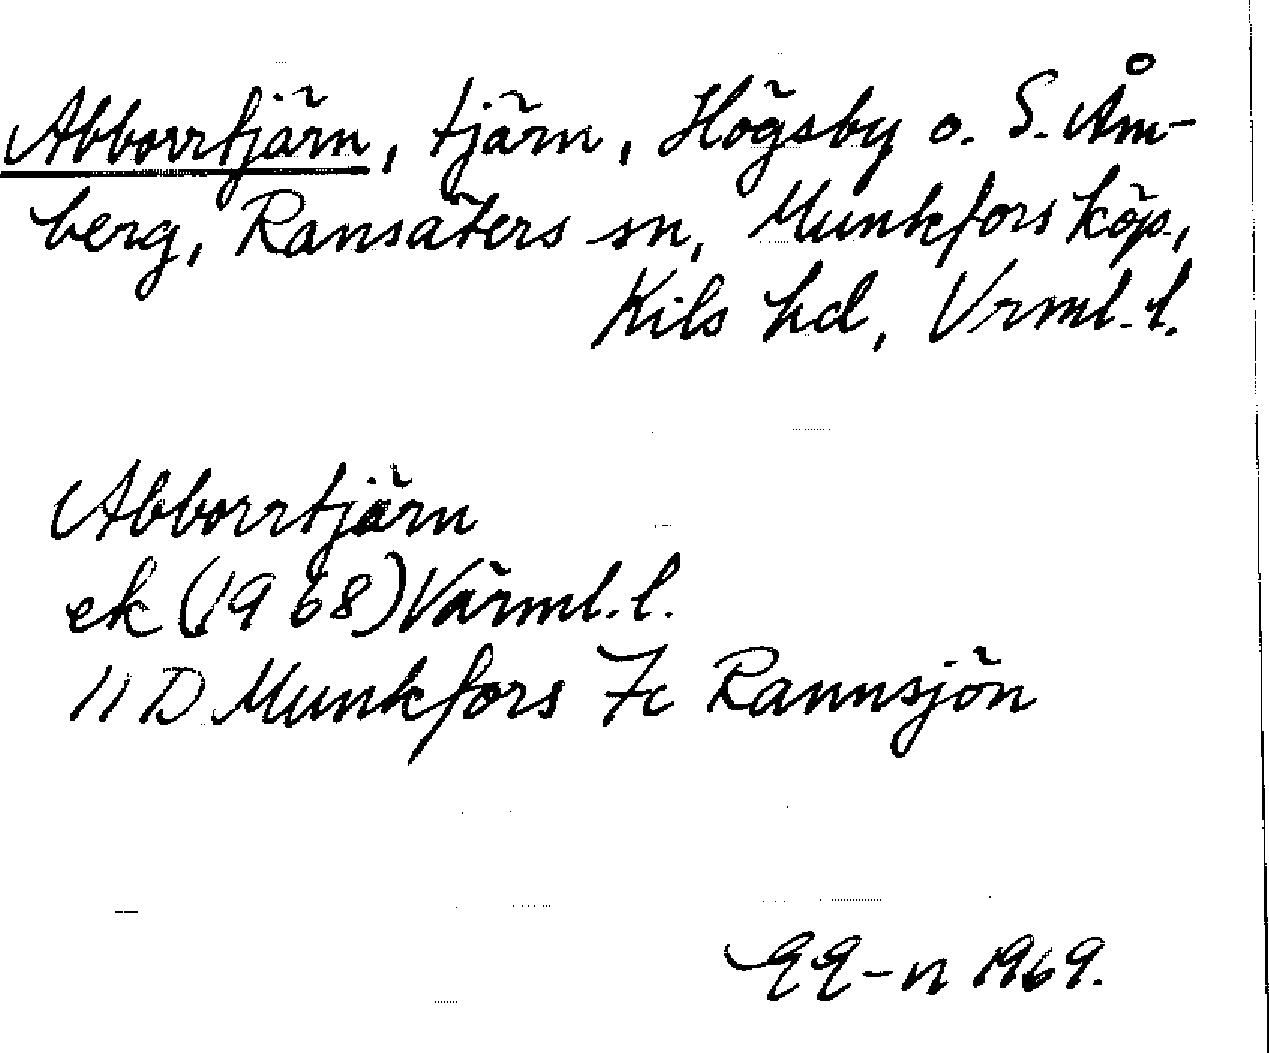 Abborrtjärn, tjärn, Högsby o. S. Åm-
berg, Ransäters sn, Munkfors köp.,
Kils hd, Vrml. l.
Abborrtjärn
ek (1968) Värml. l.
11 D Munkfors 7c Rannsjön
EE-n 1969.